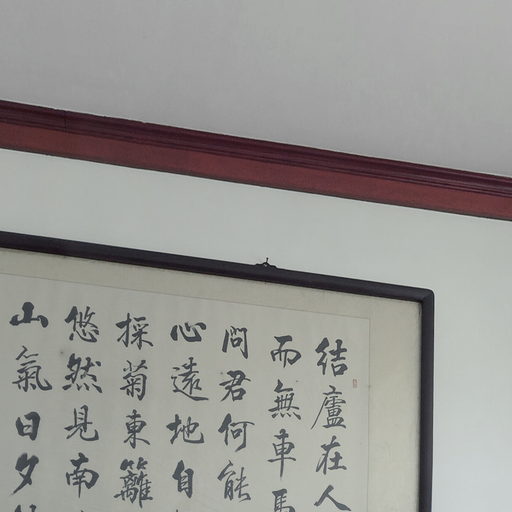 結廬在人
而無車馬
問君何能
心遠地自
採菊東籬
悠然見南
山氣日夕